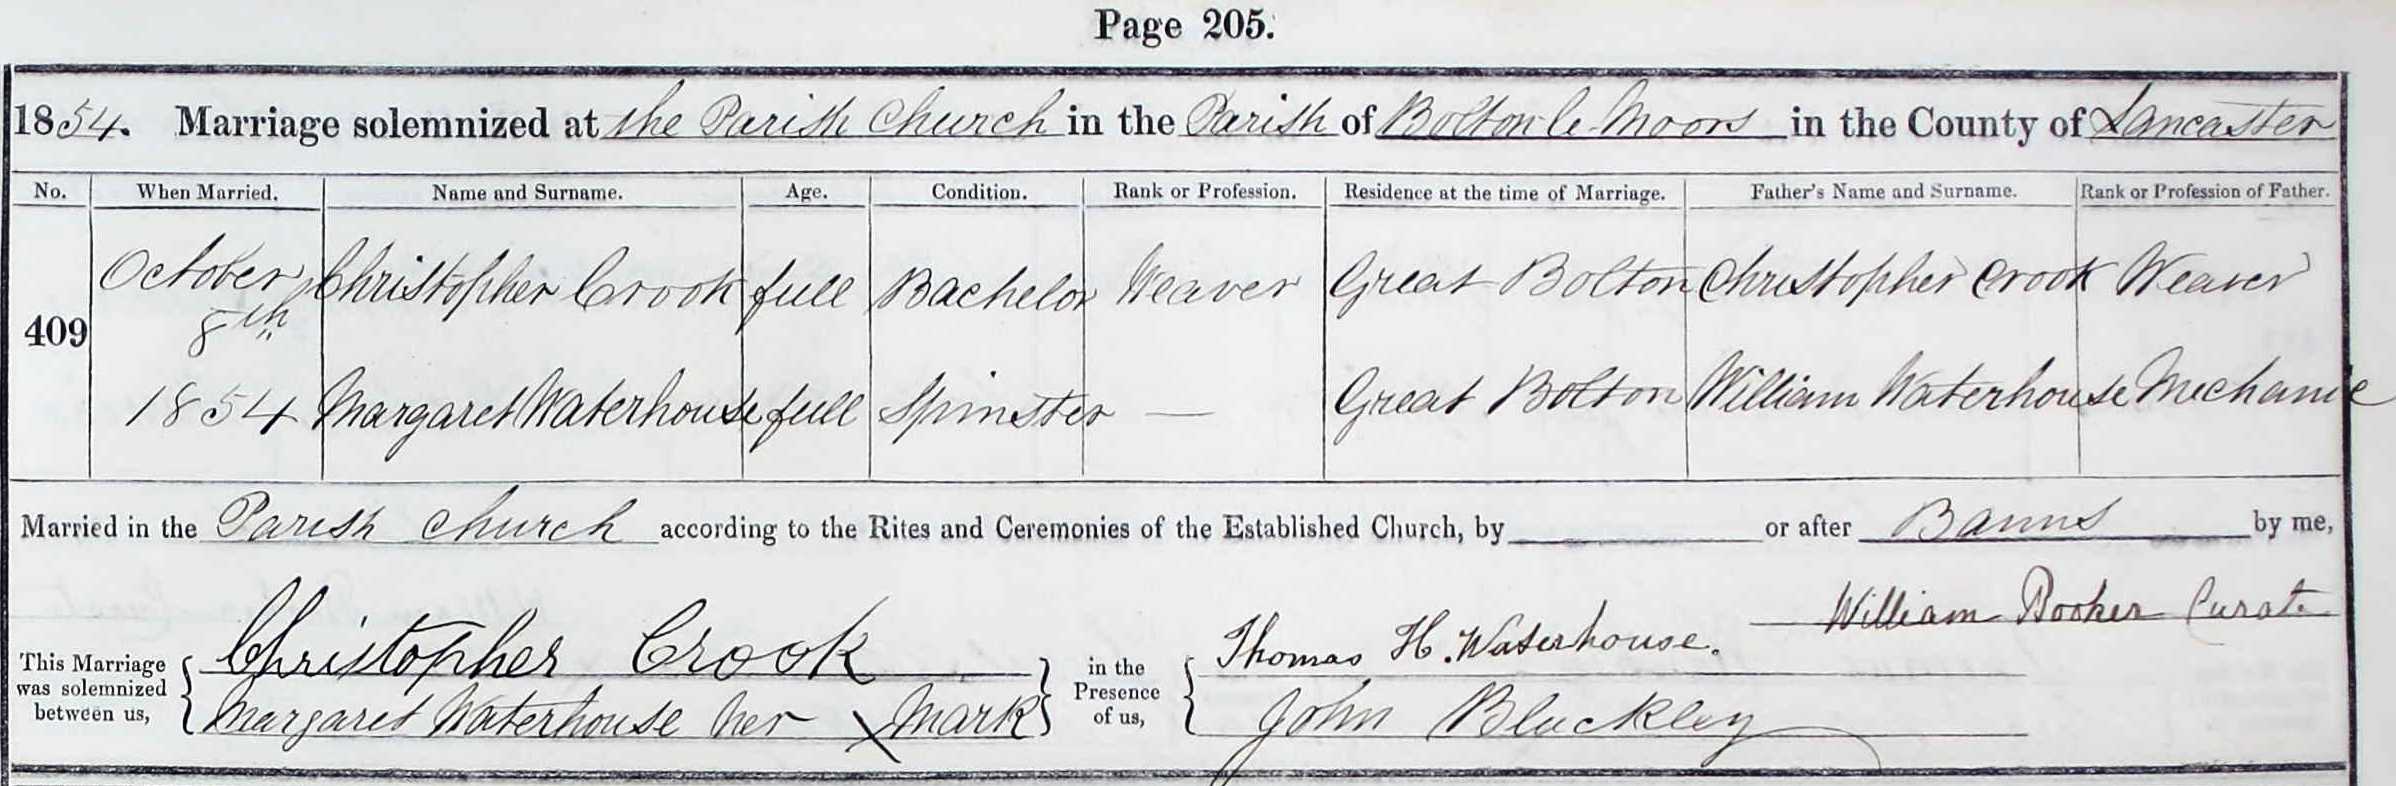 Page 205.
1854. Marriage solemnized at the Parish Church in the Parish of Bolton le Moors in the County of Lancaster
No. When Married. Name and Surname. Age. Condition. Rank or Profession. Residence at the time of Marriage. Father's Name and Surname. Rank or Profession of Father.
409 October 8th 1854
Christopher Crook full Bachelor Weaver Great Bolton Christopher Crook Weaver
Margaret Waterhouse full Spinster — Great Bolton William Waterhouse Mechanic
Married in the Parish Church according to the Rites and Ceremonies of the Established Church, by or after Banns by me,
William Booker Curate
This Marriage was solemnized between us, Christopher Crook
Margaret Waterhouse her X Mark
in the Presence of us, Thomas H. Waterhouse.
John Bluckley